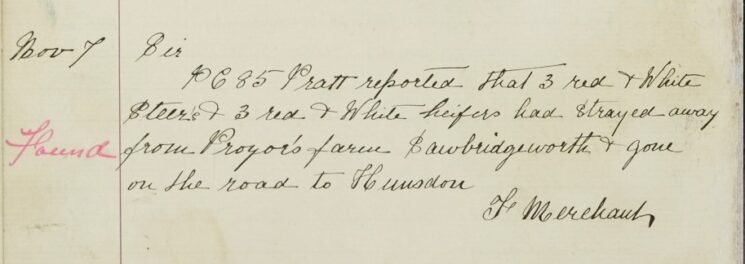 Nov 7 Sir
PC 85 Pratt reported that 3 red & White
Steer's & 3 red & White heifers had strayed away
Found from Pryor's farm Sawbridgeworth & gone
on the road to Hunsdon
F Merchant